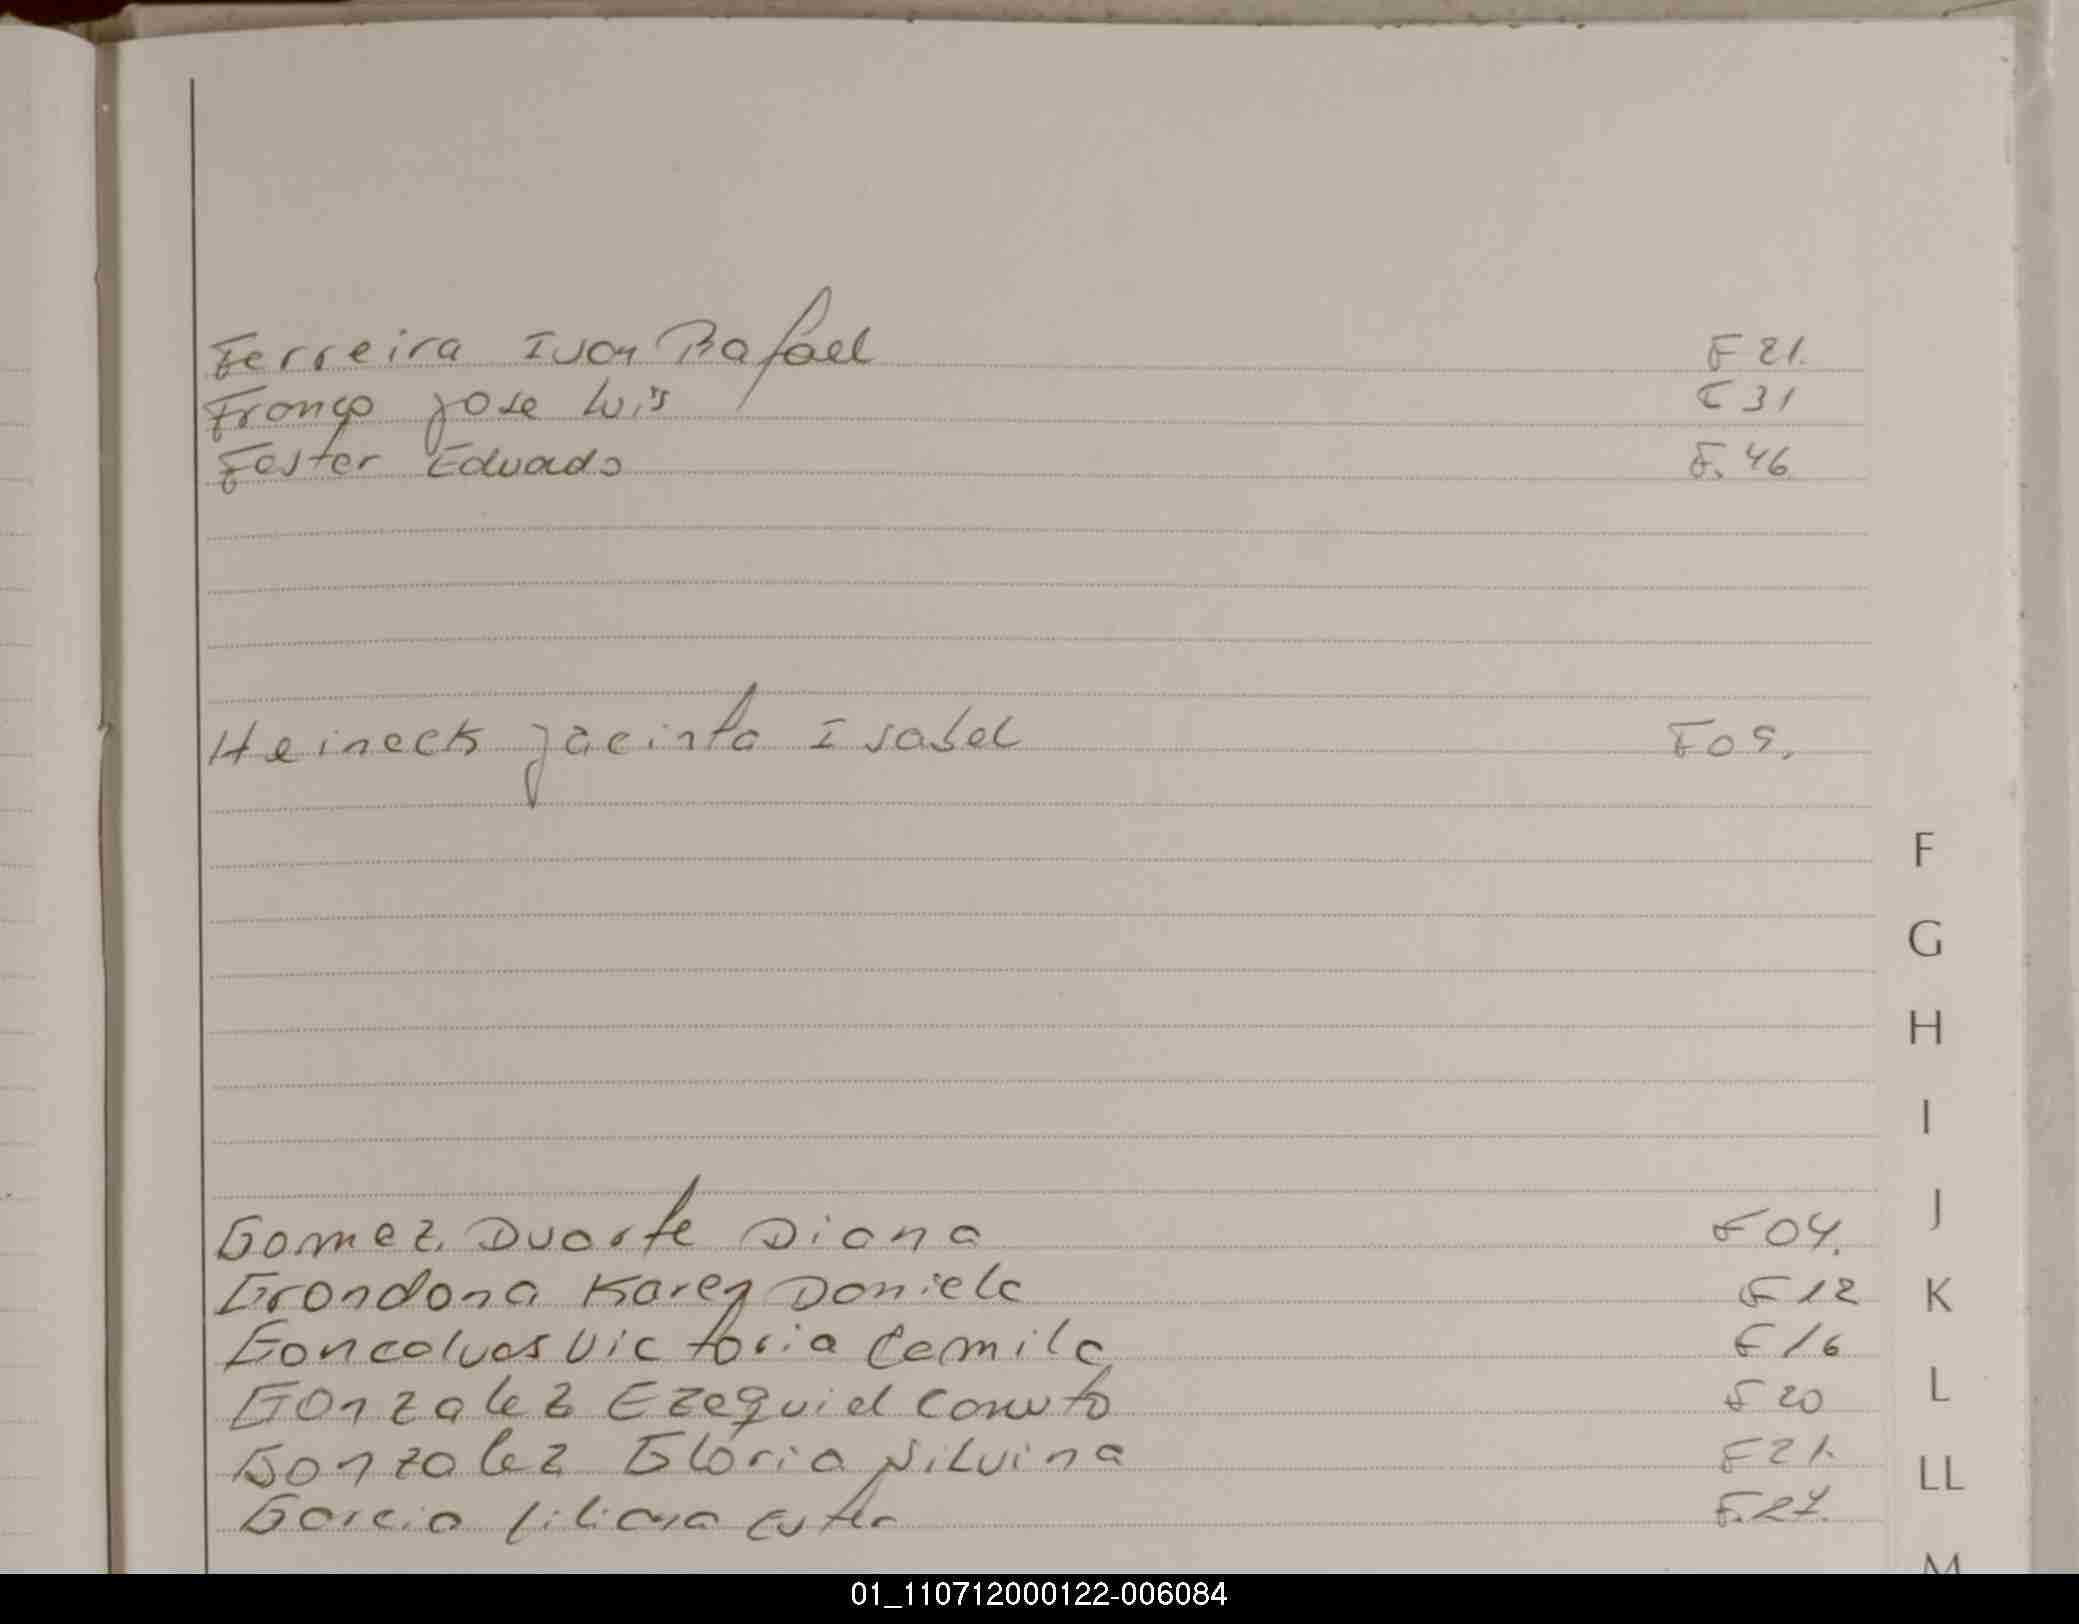 Ferreira Ivan Rafael F 21.
Franco Jose Luis F 31
Foster Eduardo F. 46.
Heineck Jacinta Isabel F 09.
F
G
H
I
J
Gomez Duarte Diana F 04.
Grondona Karen Daniela F 12
K
Goncalves Victoria Camila F 16
Gonzalez Ezequiel Canuto F 20
L
Gonzalez Gloria Silvina F 21.
LL
Garcia Liliana Ester F. 27.
M
01_110712000122-006084